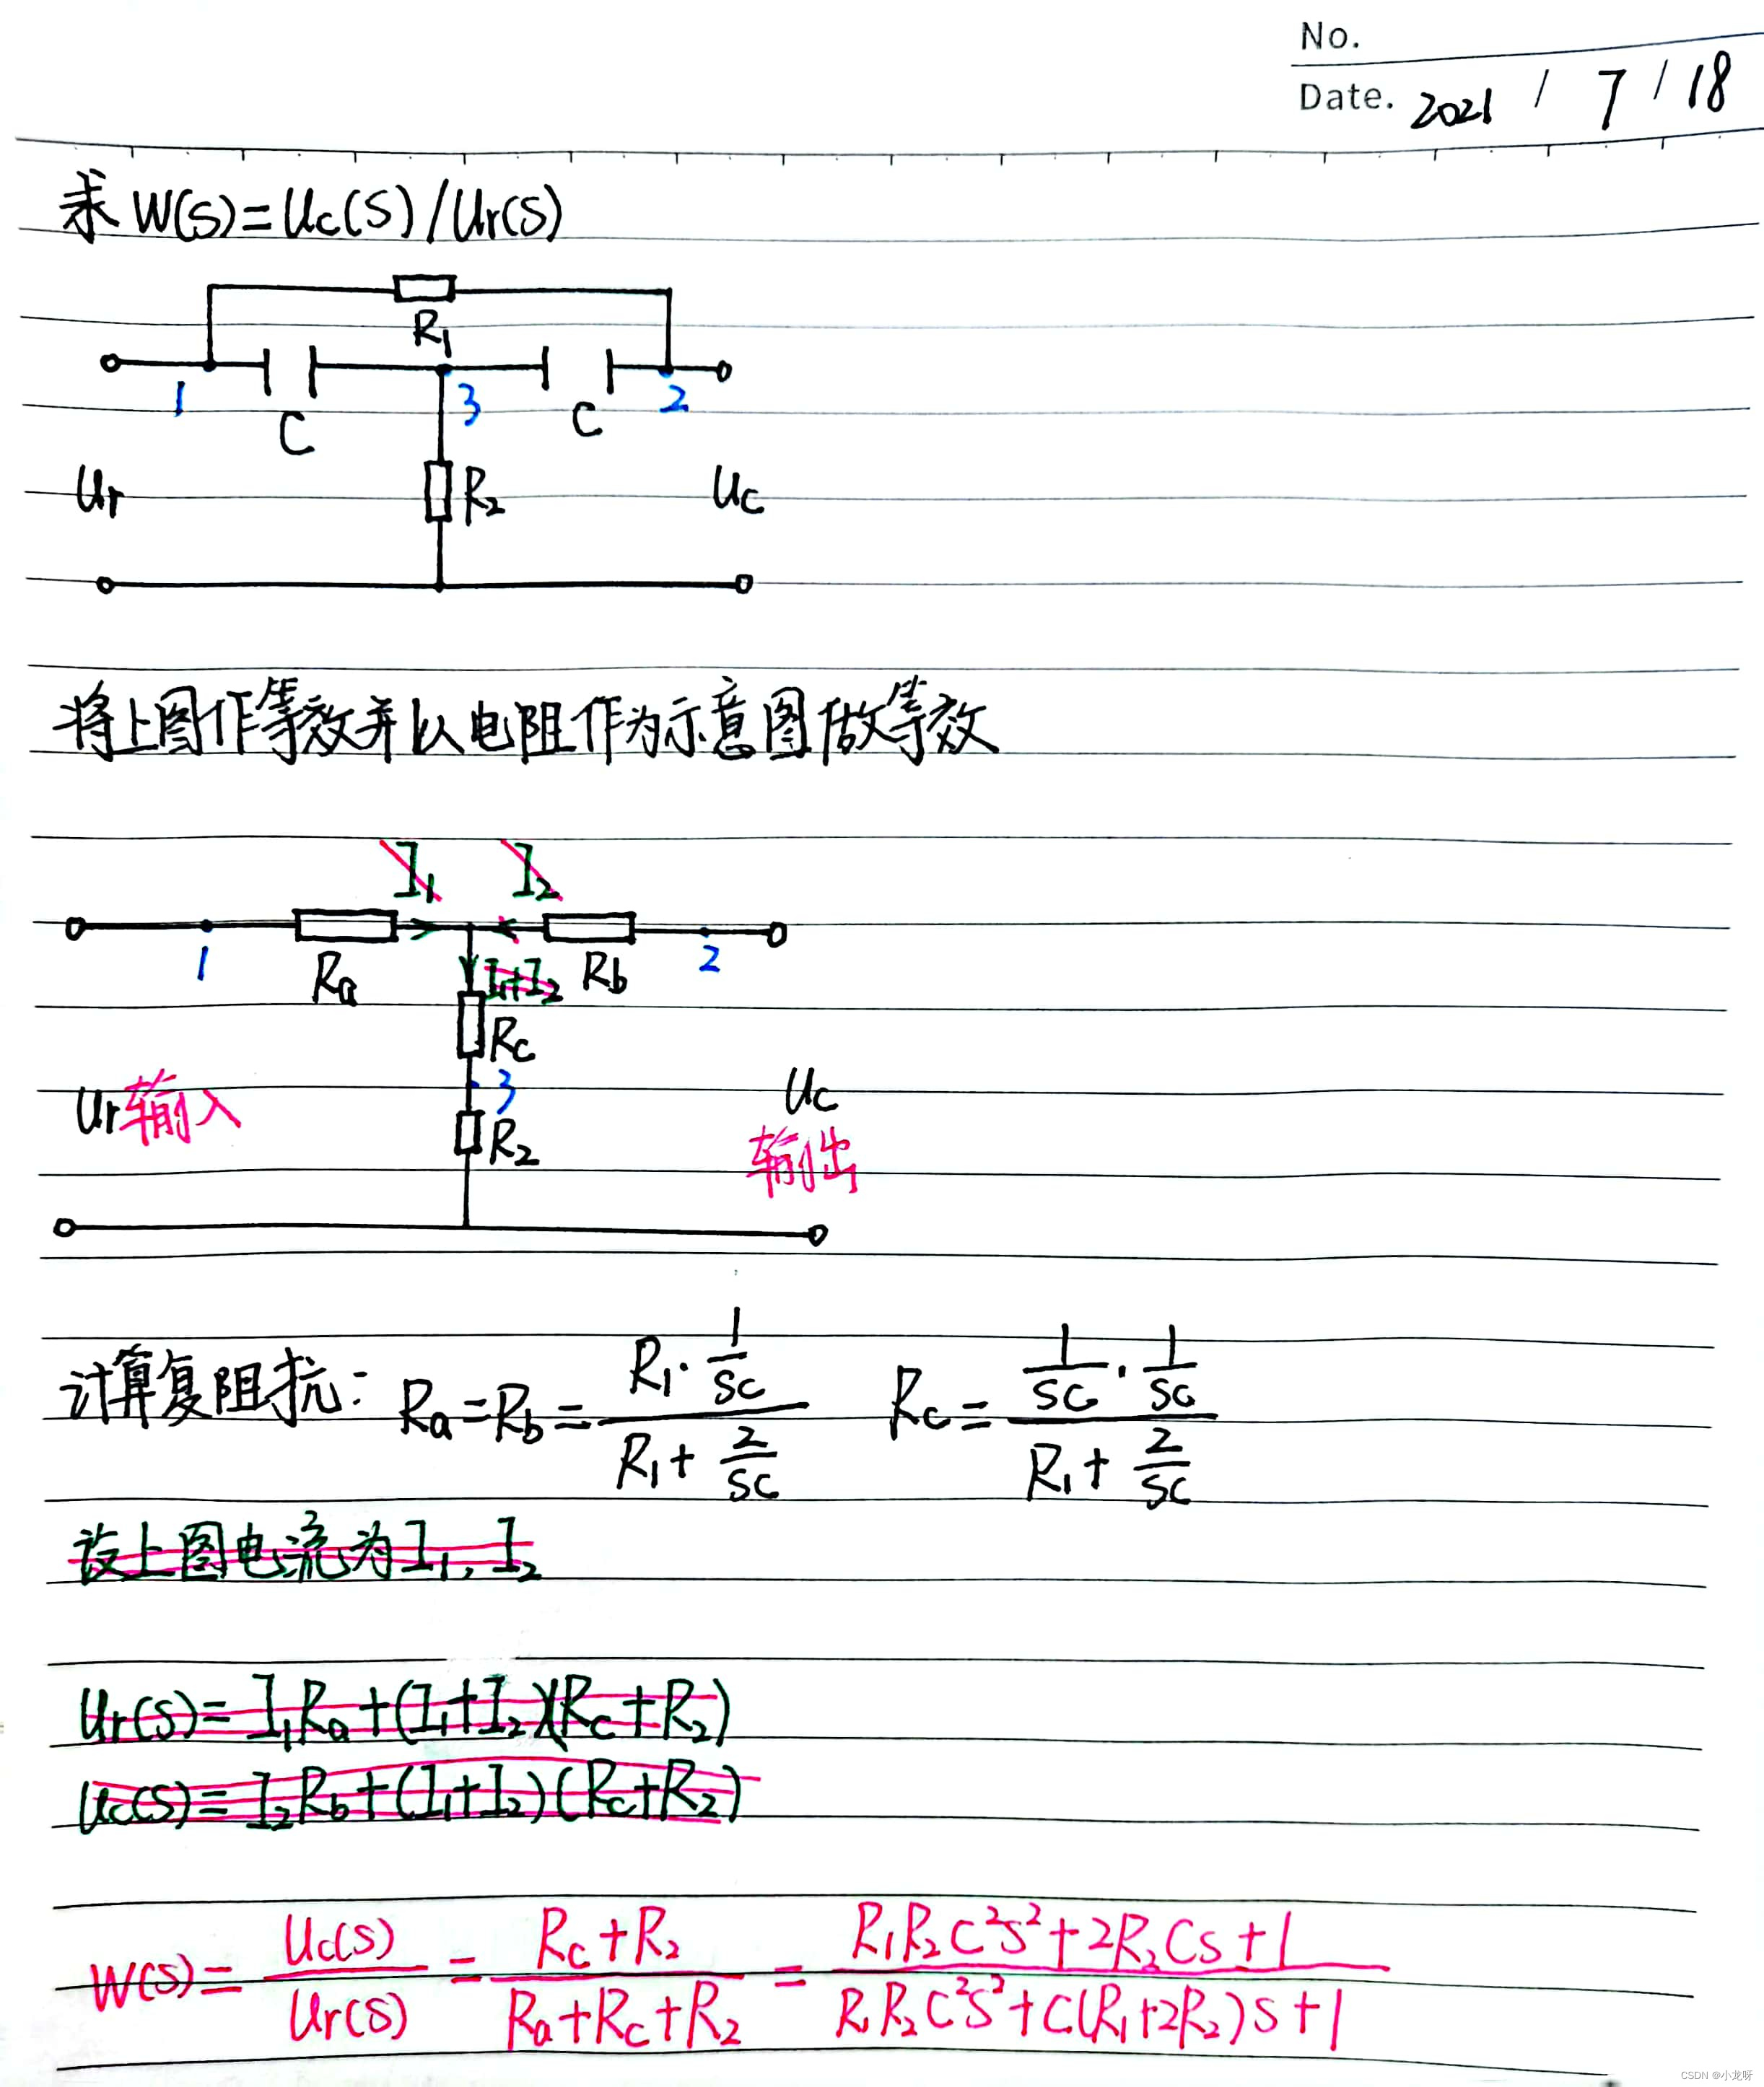 No.
Date. 2021 / 7 / 18
求 W(s)=Uc(s)/Ur(s)
R₁
1 3 2
C C
Ur R₂ Uc
将上图作等效并以电阻作为示意图做等效
I₁ I₂
1 Ra I₁+I₂ Rb 2
Rc
3
Ur 输入 Uc
R₂ 输出
计算复阻抗: Ra=Rb= (R₁·1/sc)/(R₁+2/sc) Rc= (1/sc·1/sc)/(R₁+2/sc)
设上图电流为I₁, I₂
Ur(s)= I₁Ra+(I₁+I₂)(Rc+R₂)
Uc(s)= I₂Rb+(I₁+I₂)(Rc+R₂)
W(s)= Uc(s)/Ur(s) = (Rc+R₂)/(Ra+Rc+R₂) = (R₁R₂C²s²+2R₂Cs+1)/(R₁R₂C²s²+C(R₁+2R₂)s+1)
CSDN @小龙呀